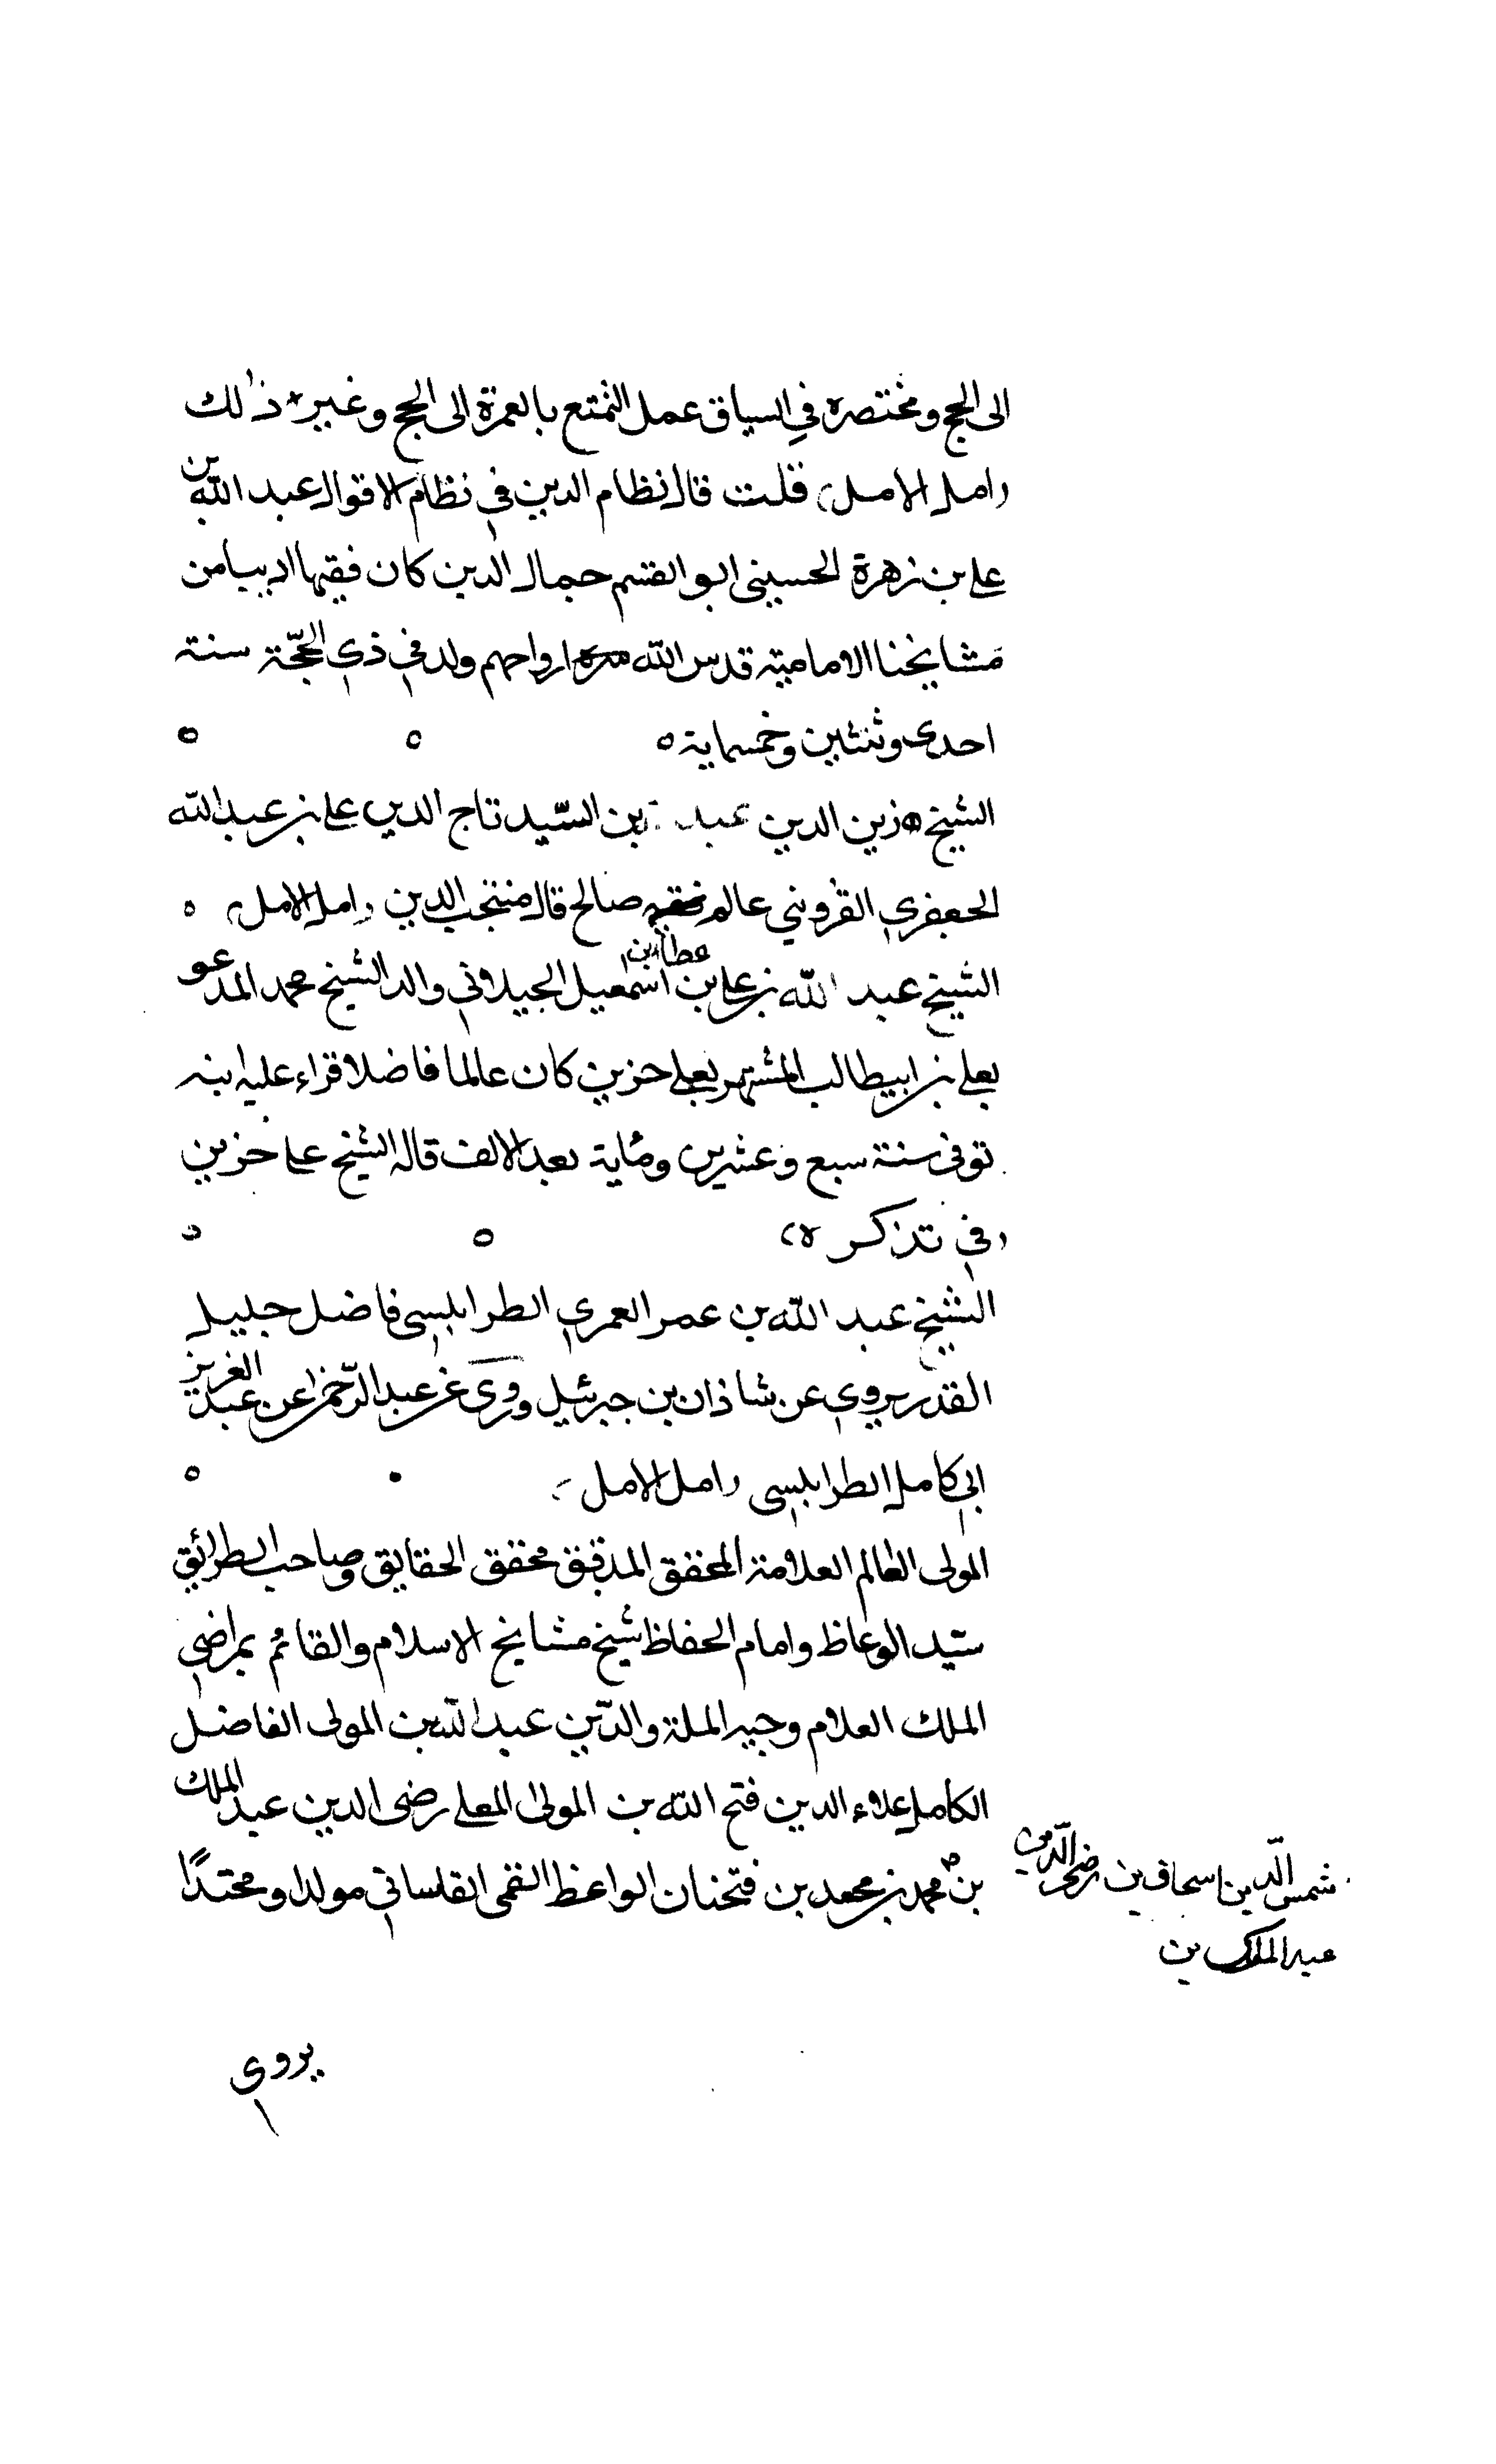 الى الحج ومختصره في السياق عمل التمتع بالعمرة الى الحج وغير ذلك
(امل الامل) قلت قال نظام الدين في نظام الاقوال عبد الله بن
على بن زهرة الحسينى ابو القسم جمال الدين كان فقيها اديبا من
مشايخنا الامامية قدس الله ارواحهم ولد في ذي الحجّة سنة
احدى وثلثين وخمسماية
الشيخ زين الدين عبد بن السّيد تاج الدين على بن عبد الله
الجعفري القزويني عالم فقيه صالح قال منتجب الدين (امل الامل)
الشيخ عبد الله بن على بن عطاء بن اسمعيل الجيلاني والد الشيخ محمد المدعو
بعلى بن ابيطالب المشتهر بعلى حزين كان عالما فاضلا قراء عليه ابنه
توفى سنة سبع وعشرين ومٔاية بعد الالف قاله الشيخ على حزين
(في تذكره)
الشيخ عبد الله بن عمر العمري الطرابلسي فاضل جليل
القدر يروي عن شاذان بن جبرئيل وروى عن عبد الرّحمن عن عبد العزيز
ابي كامل الطرابلسي (امل الامل)
المولى العالم العلامة المحقق المدقق محقق الحقايق وصاحب الطرائق
سيّد الوعاظ وامام الحفاظ شيخ مشايخ الاسلام والقائم بمراضي
الملك العلام وجيه الملة والدّين عبد الله بن المولى الفاضل
الكامل علاء الدين فتح الله بن المولى المعلى رضى الدين عبد الملك
بن محمد بن محمد بن فتحان الواعظ القمى القاساني مولدا ومحتدًا
شمس الّدين اسحاق بن رضى الّدين
عبد الملك بن
يروي